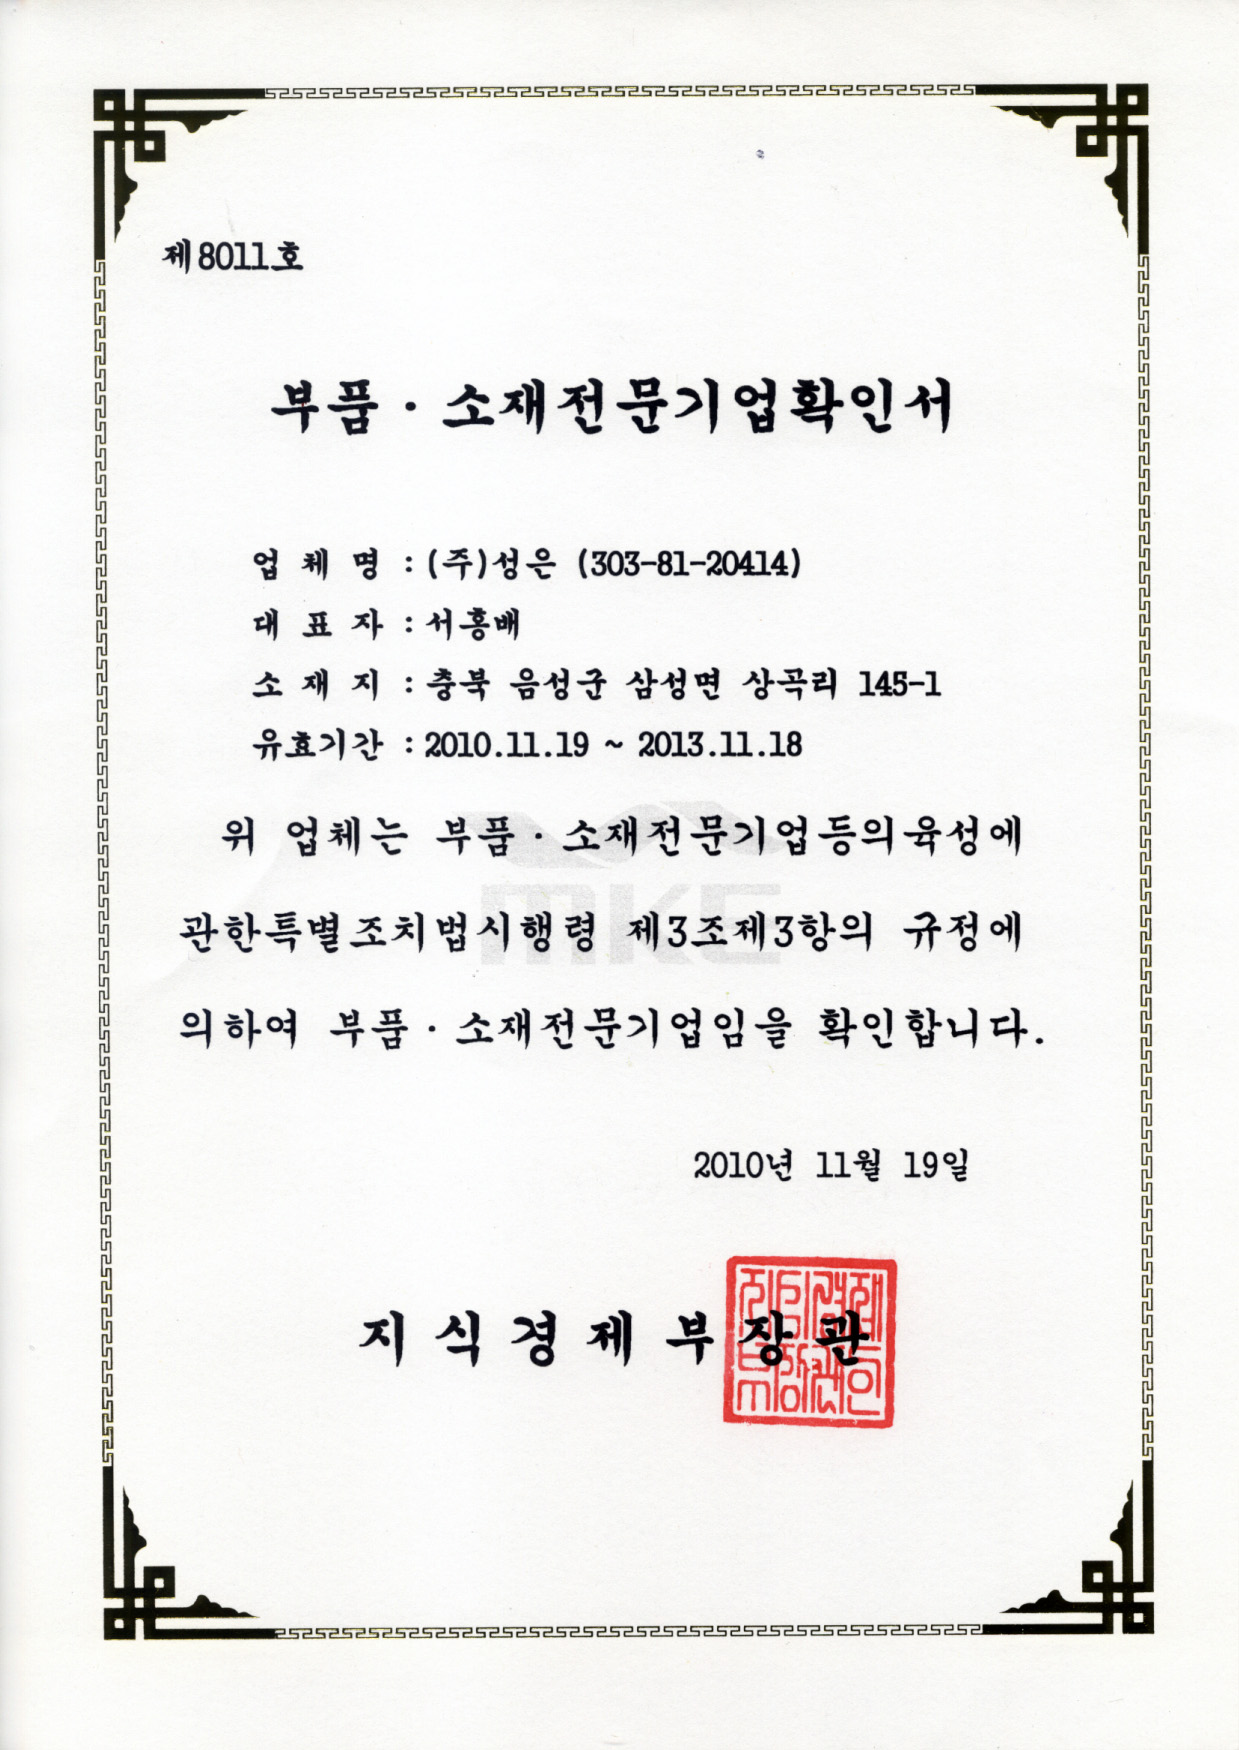 제8011호
부품·소재전문기업확인서
업 체 명 : (주)성은 (303-81-20414)
대 표 자 : 서홍배
소 재 지 : 충북 음성군 삼성면 상곡리 145-1
유효기간 : 2010.11.19 ~ 2013.11.18
위 업체는 부품·소재전문기업등의육성에
관한특별조치법시행령 제3조제3항의 규정에
의하여 부품·소재전문기업임을 확인합니다.
MKE
2010년 11월 19일
지식경제부장관